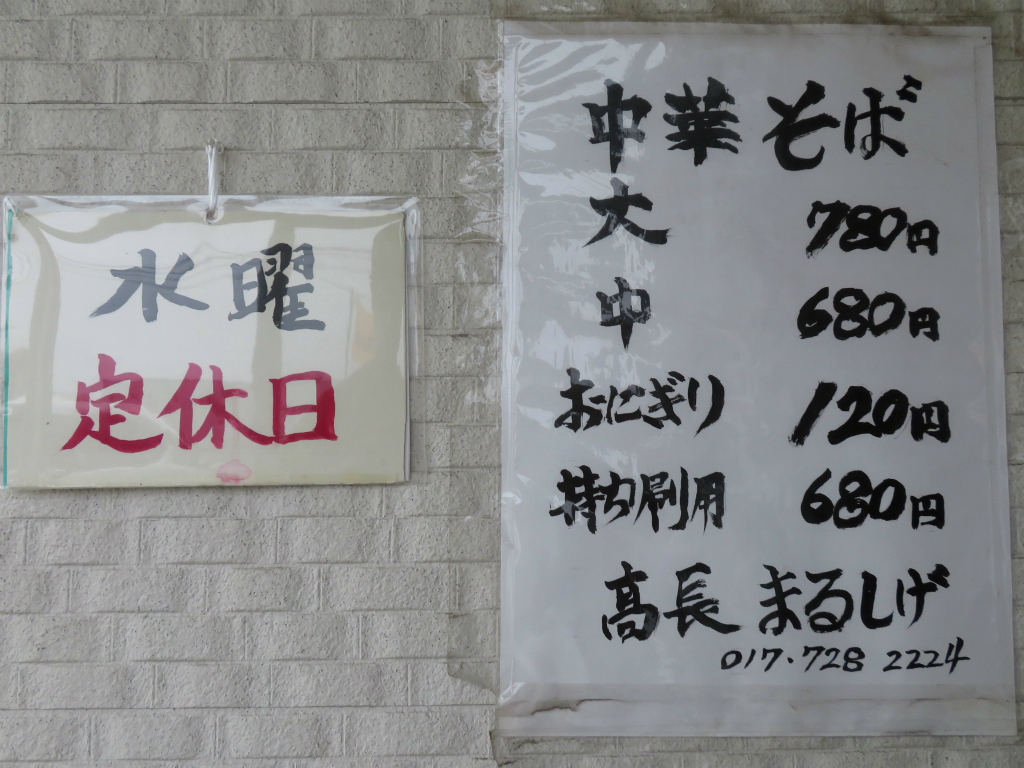 水曜
定休日
中華そば
大 780円
中 680円
おにぎり 120円
持ち刷用 680円
高長 まるしげ
017.728 2224